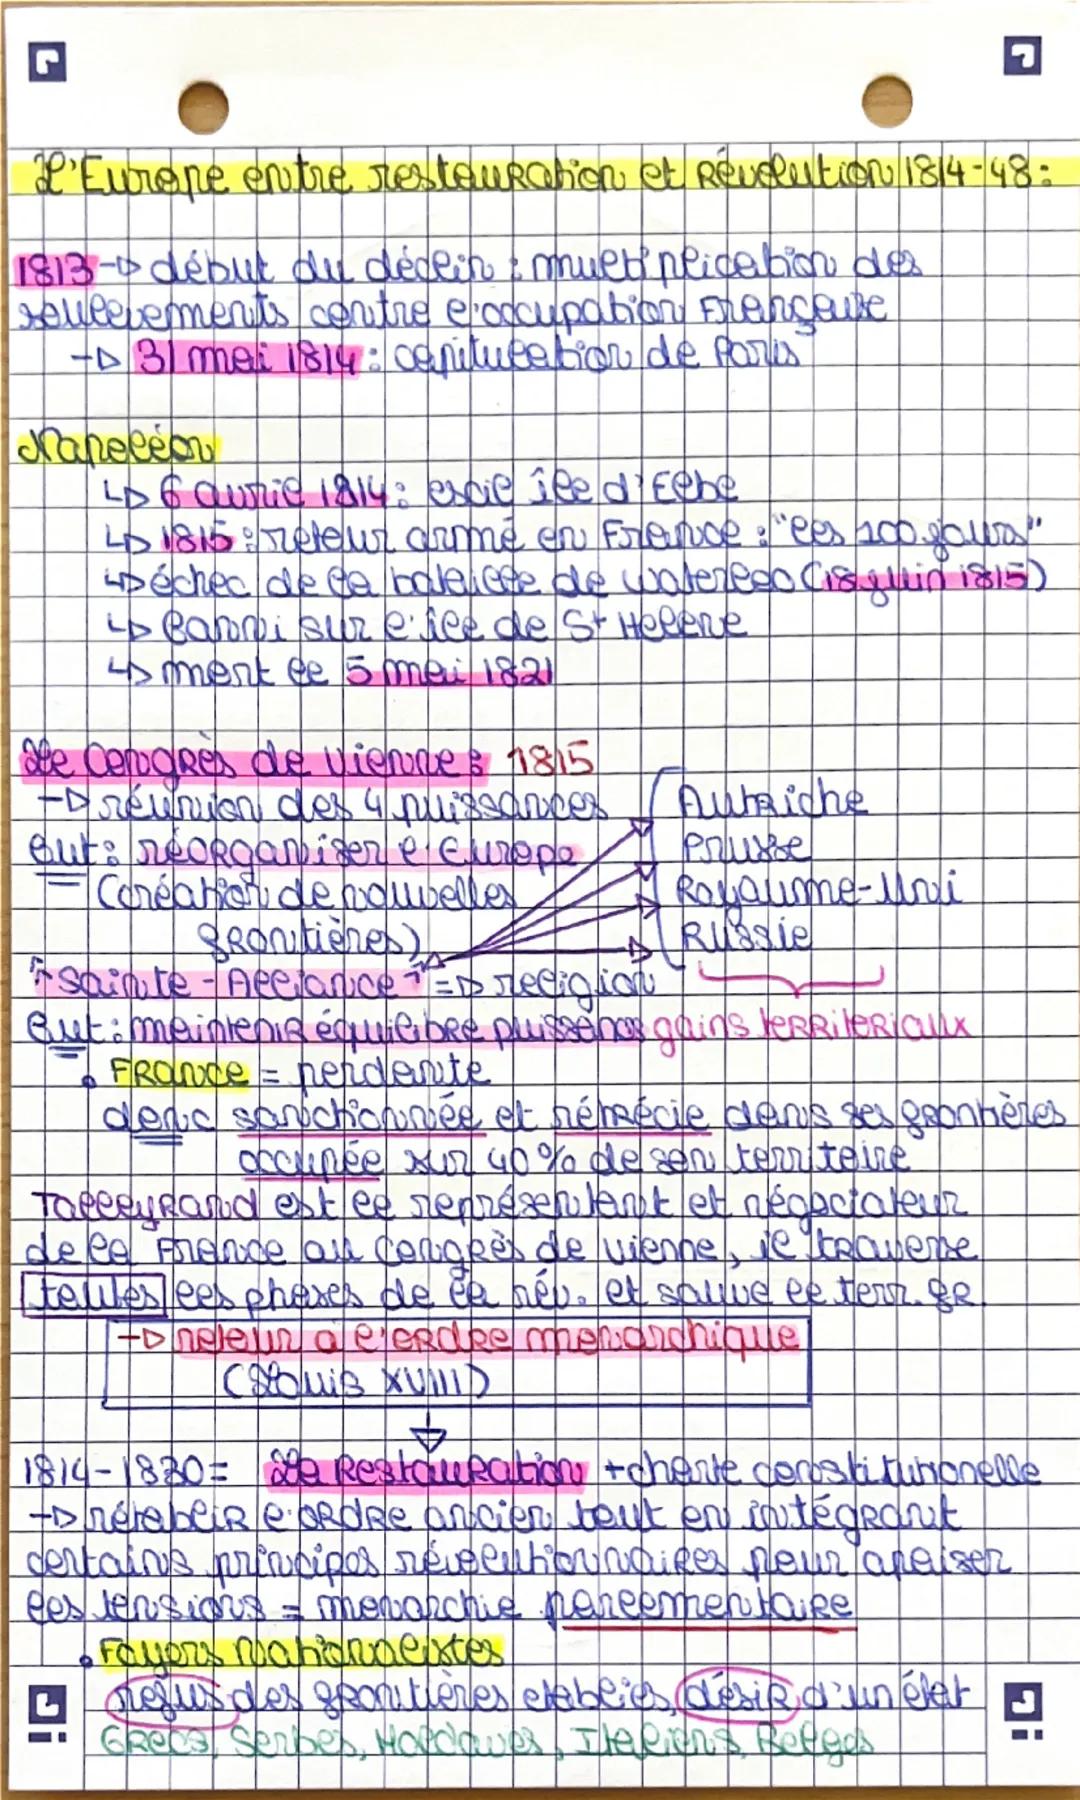 L'Europe entre restauration et Révolution 1814-48:
1813 → début du déclin : multiplication des
soulèvements contre l'occupation Française
→ 31 mai 1814 : capitulation de Paris
Napoléon
↳ 6 avril 1814 : exil île d'Elbe
↳ 1815 : retour armé en France : "les 100 jours"
↳ échec de la bataille de waterloo (18 juin 1815)
↳ Banni sur l'île de St Helene
↳ mort le 5 mai 1821
Le Congrès de Vienne : 1815
→ réunion des 4 puissances
But : réorganiser l'Europe
(création de nouvelles
frontières)
Autriche
Prusse
Royaume-Uni
Russie
"Sainte-Alliance" => religion
But : maintenir équilibre puissances gains territoriaux
• France = perdante
donc sanctionnée et rétrécie dans ses frontières
occupée sur 40% de son territoire
Talleyrand est le représentant et négociateur
de la France au Congrès de Vienne, il traverse
toutes les phases de la rév. et sauve le terr. fr
→ retour a l'ordre monarchique
(Louis XVIII)
1814-1830 = La Restauration + charte constitutionelle
→ rétablir l'ordre ancien tout en intégrant
certains principes révolutionnaires pour apaiser
les tensions = monarchie parlementaire
• Foyers Nationalistes
refus des frontières établies, désir d'un état
Grecs, Serbes, Moldaves, Italiens, Belges